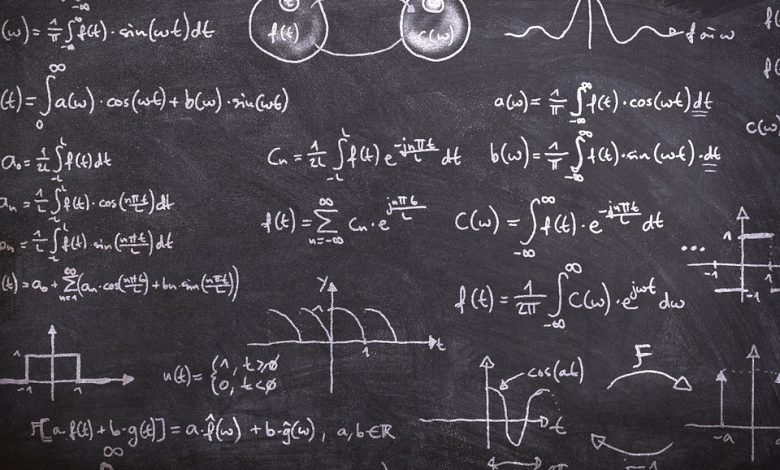 (ω) = 1/π ∫_{-∞}^{∞} f(t)·sin(ωt)dt
f(t)
c(ω)
(t) = ∫_{0}^{∞} a(ω)·cos(ωt) + b(ω)·sin(ωt)
a(ω) = 1/π ∫_{-∞}^{∞} f(t)·cos(ωt)dt
a₀ = 1/2L ∫_{-L}^{L} f(t)dt
Cₙ = 1/2L ∫_{-L}^{L} f(t) e^{-jnπt/L} dt
b(ω) = 1/π ∫_{-∞}^{∞} f(t)·sin(ωt)·dt
c(ω)
aₙ = 1/L ∫_{-L}^{L} f(t)·cos(nπt/L)dt
f(t) = ∑_{n=-∞}^{∞} Cₙ·e^{jnπt/L}
C(ω) = ∫_{-∞}^{∞} f(t)·e^{-jnπt/L} dt
bₙ = 1/L ∫_{-L}^{L} f(t) sin(nπt/L)dt
... 1 -1 1
(t) = a₀ + ∑_{n=1}^{∞} (aₙ·cos(nπt/L) + bₙ·sin(nπt/L))
f(t) = 1/2π ∫_{-∞}^{∞} C(ω)·e^{jωt} dω
y
1
1
t
1
-1
1
u(t) = {1, t≥0
0, t<0
cos(at)
t
F
F[a·f(t) + b·g(t)] = a·f̂(ω) + b·ĝ(ω), a,b∈ℝ
-a
a
∞